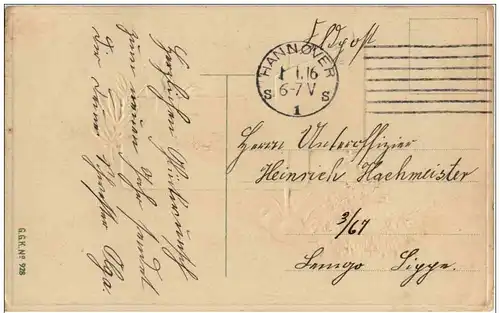 Feldpost
HANNOVER
1.1.16
6-7 V
S S
1
Herrn Unteroffizier
Heinrich Hachmeister
3/67
Lemgo Lippe.
Herzlichen Glückwunsch
zum neuen Jahr sendet
Dir Deine Schwester Olga.
G.G.K. Nº 928